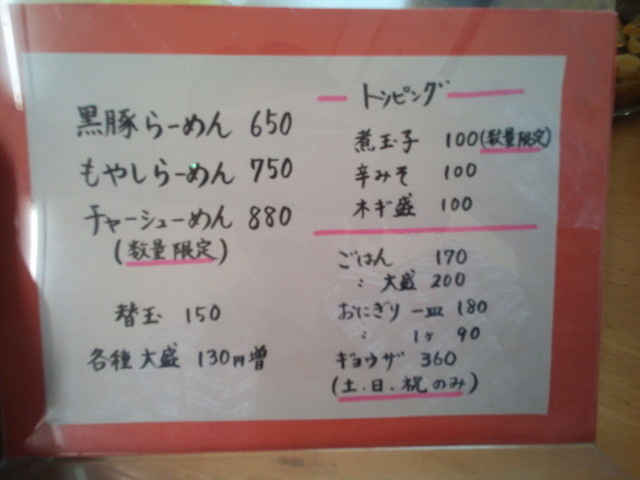 黒豚らーめん 650
もやしらーめん 750
チャーシューめん 880
(数量限定)
替玉 150
各種大盛 130円増
トッピング
煮玉子 100(数量限定)
辛みそ 100
ネギ盛 100
ごはん 170
〃 大盛 200
おにぎり 一皿 180
〃 1ヶ 90
ギョウザ 360
(土、日、祝のみ)